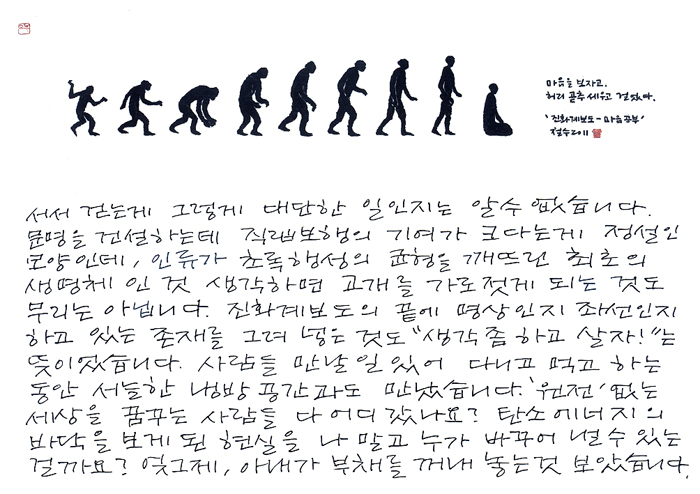 마음을 보자고.
허리 곧추 세우고 걸었다.
'진화계보도-마음공부'
철수2011
서서 걷는게 그렇게 대단한 일인지는 알수 없었습니다.
문명을 건설하는데 직립보행의 기여가 크다는게 정설인
모양인데, 인류가 초록행성의 균형을 깨뜨린 최초의
생명체 인 것 생각하면 고개를 가로젓게 되는 것도
무리는 아닙니다. 진화계보도의 끝에 명상인지 좌선인지
하고 있는 존재를 그려 넣은 것도 "생각 좀 하고 살자!"는
뜻이었습니다. 사람들 만날 일 있어 다니고 먹고 하는
동안 서늘한 냉방 공간과도 만났습니다. '원전' 없는
세상을 꿈꾸는 사람들 다 어디 갔나요? 탄소에너지의
바닥을 보게 된 현실을 나 말고 누가 바꾸어 낼 수 있는
걸까요? 엊그제, 아내가 부채를 꺼내 놓는것 보았습니다.